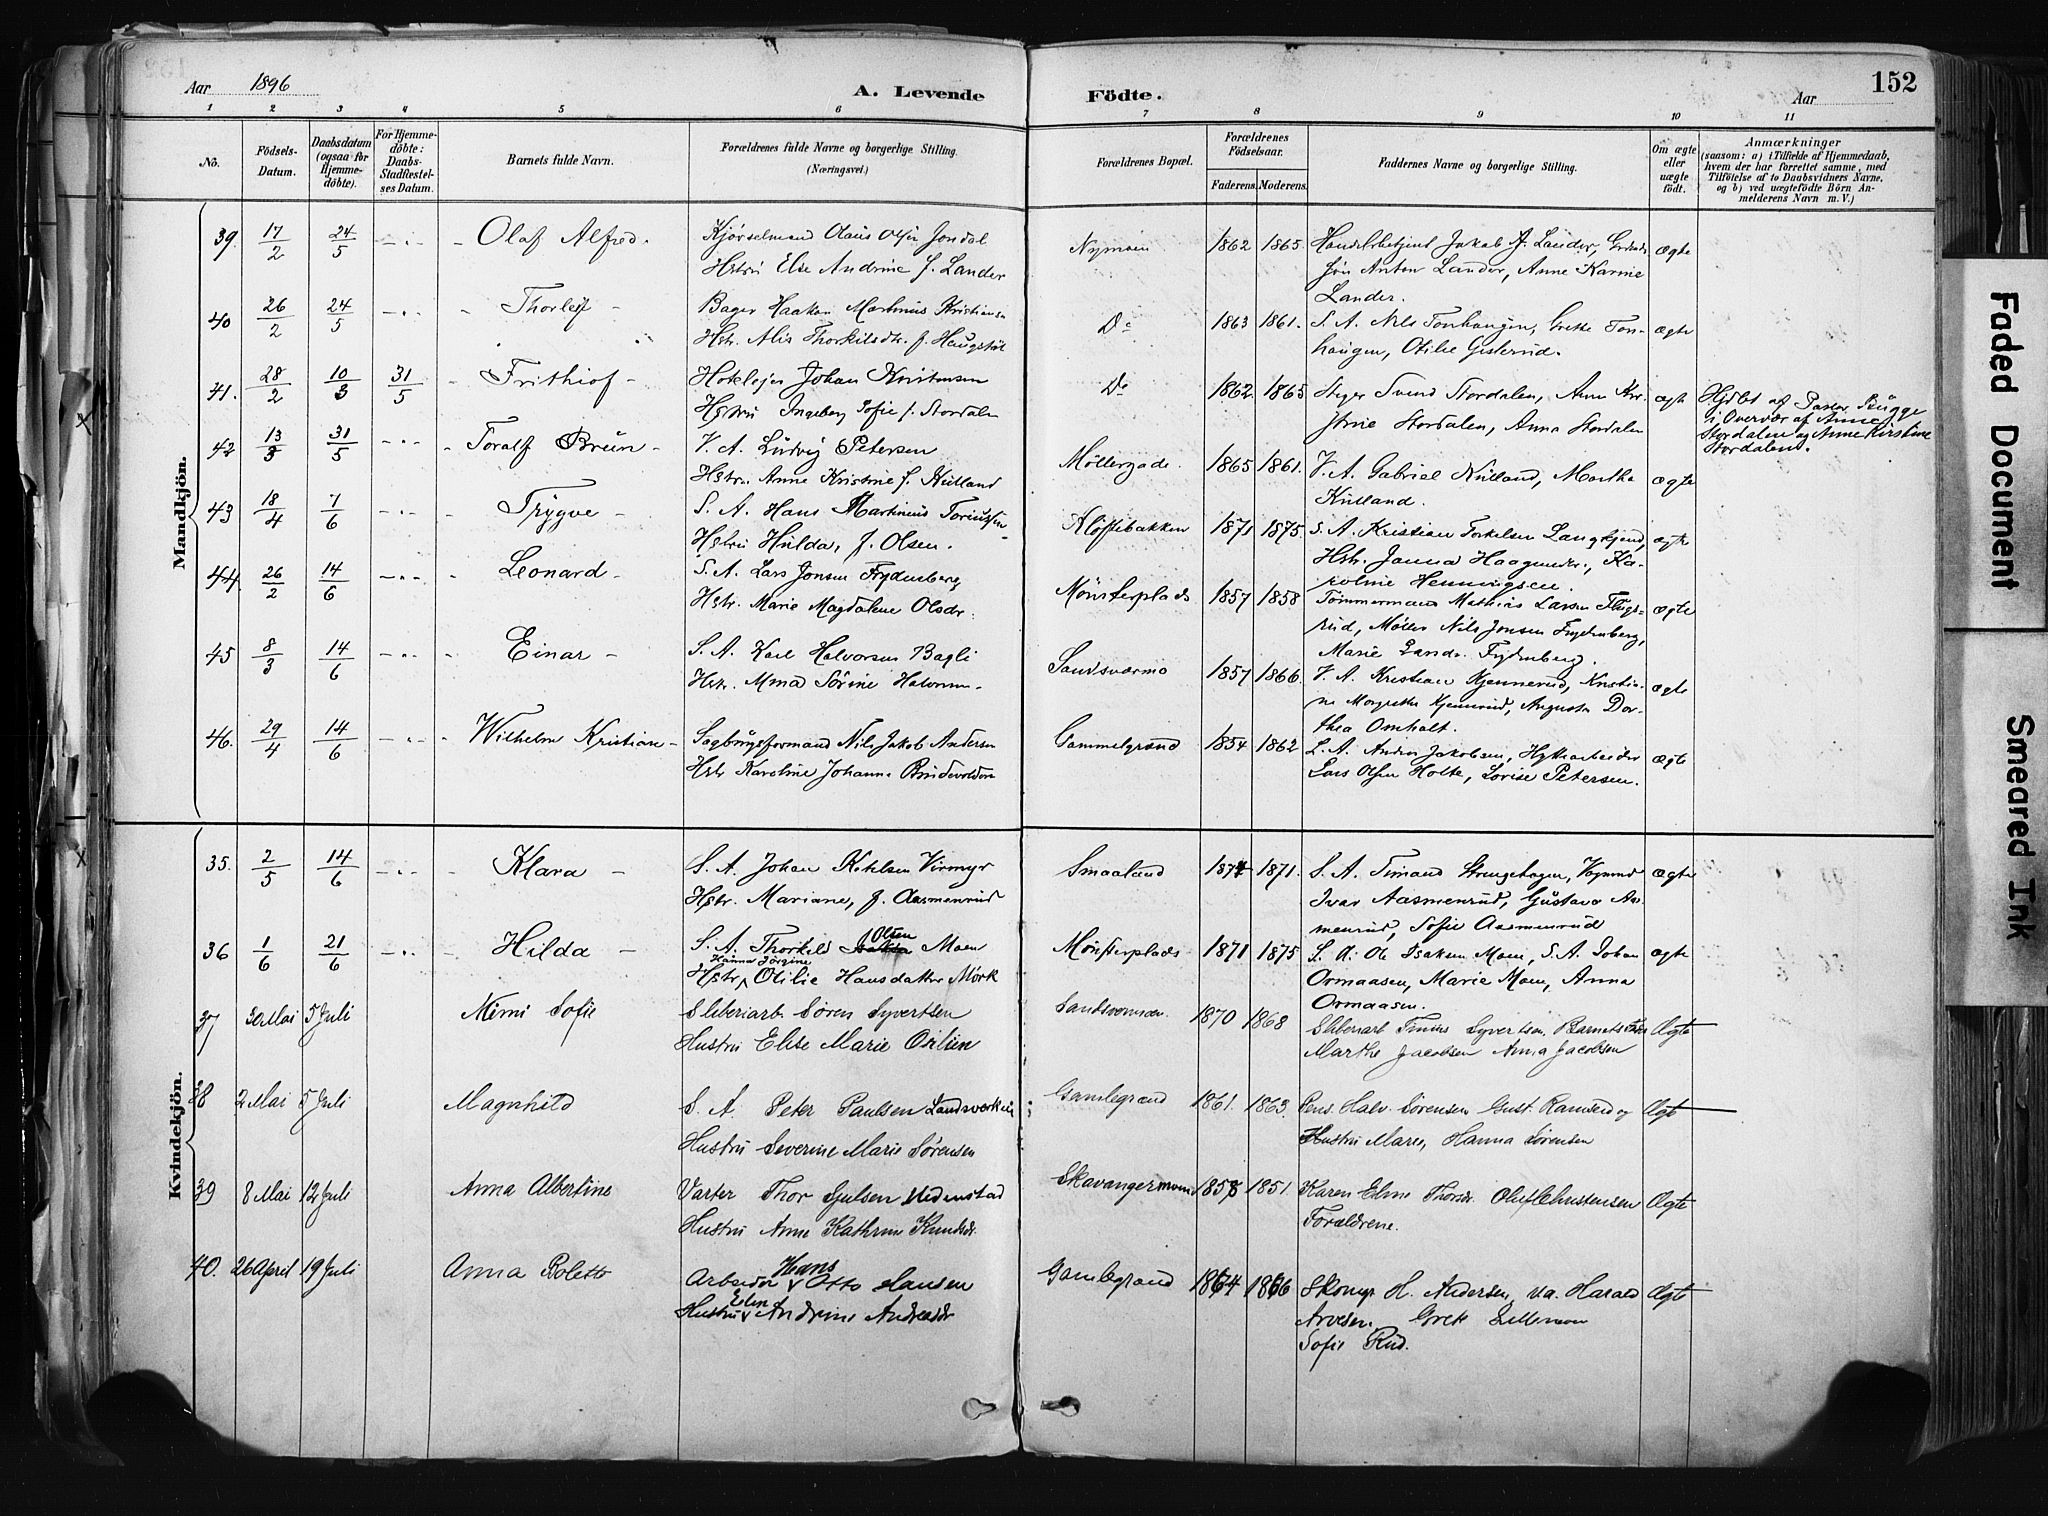 Aar 1896
A. Levende Födte.
152
Aar
1 2 3 4 5 6 7 8 9 10 11
No.
Födsels-Datum.
Daabsdatum (ogsaa for Hjemmedöbte).
For Hjemmedöbte: Daabs-Stadfæstelses Datum.
Barnets fulde Navn.
Forældrenes fulde Navne og borgerlige Stilling. (Næringsvei.)
Forældrenes Bopæl.
Forældrenes Födselsaar.
Faderens. Moderens.
Faddernes Navne og borgerlige Stilling.
Om ægte eller uægte födt.
Anmærkninger
(saasom: a) i Tilfælde af Hjemmedaab, hvem der har forrettet samme, med Tilföielse af to Daabsvidners Navne, og b) ved uægtefödte Börn Anmelderens Navn m. V.)
Mandkjön.
39. 17/2 24/5 - " - Olaf Alfred. Kjørselmand Olaus Olsen Jondal Nymoen 1862 1865. Handelsbetjent Jakob J. Lander, ægte
Hstru Else Andrine f. Lander Jøn Anton Lander, Anne Karine
Lander.
40 26/2 24/5 - " - Thorleif - Bager Haakon Martinus Kristians. Do 1863 1861. S. A. Nils Tonhaugen, Grethe Ton- ægte
Hstr. Alis Thorkilsdtr. f. haugen, Otilie Gisterud.
41. 28/2 10/3 31/5 - Frithiof - Hoteleier Johan Kristensen Do 1862. 1865 Steger Svend Stordalen, Anne Kir- ægte Hjdbt af Pastor Bugge
Hstru Ingeborg Sofie f. Stordalen stine Stordalen, Anna Stordalen i Overvær af Anne
Stordalen og Anne Kirstine
Stordalen.
42 13/3 31/5 - " - Toralf Bruun - V. A. Ludvig Petersen Möllergade. 1865 1861. V. A. Gabriel Kulland, Marthe ægte
Hstr. Anne Kristine f. Kulland Kulland.
43 18/4 7/6 - " - Trygve - S. A. Hans Martinius Toriussen Kløftebakken 1871 1875. S. A. Kristian Torkelsen Langkjend, ægte
Hstru Hulda, f. Olsen. Hstr. Janna Haagensdr., Ka-
roline Henningsen.
44. 26/2 14/6 - " - Leonard - S. A. Lars Jonsen Frydenberg Mønsterplads 1857 1858 Tømmermand Mathias Larsen Flugs- ægte
Hstr. Marie Magdalene Olsdr. rud, Møller Nils Jonsen Frydenberg,
Marie Frydenberg.
45 8/3 14/6 - " - Einar - S. A. Karl Halvorsen Bagli Sandsværmo 1857 1866. V. A. Kristian Kjennerud, Kristia- ægte
Hstr. Sørine Halvorsen. ne Margrethe Kjennerud, Augusta Dor-
thea Omholt.
46. 29/4 14/6 - " - Wilhelm Kristian - Sagbrugsformand Nils Jakob Andersen Gammelgrænd 1854 1862 S. A. Anders Jakobsen, Hyttearbeider ægte
Hstr Karoline Johanne Brudevolden Lars Olsen Holte, Lovise Petersen.
Kvindekjön.
35. 2/5 14/6 - " - Klara - S. A. Johan Ketelsen Virmyr Smaaland 1874 1871. S. A. Timand Strengehagen, Ægte
Hstr. Mariane, f. Aasmenrud Ivar Aasmenrud, Gustava Aas-
menrud, Sofie Aasmenrud
36 1/6 21/6 - " - Hilda - S. A. Thorkild Olsen Moen Mønsterplads 1871 1875 S. A. Ole Isaksen Moen, S. A. Johan ægte
Hstr. Hanna Jörgine Otilie Hansdatter Mörk Ormaasen, Marie Moen, Anna
Ormaasen.
37 30 Mai 5 Juli Mimi Sofie Sliberiarb Søren Syvertsen 1870 1868 Sliberiarb Syvertsen, Barnets Far Ægte
Hustru Elise Marie Osilien Marthe Jacobsen Anna Jacobsen
38 2 Mai 5 Juli Magnhild S. A. Peter Paulsen Landsverken Gamlegrænd 1861. 1863. Pens. Halv. Sørensen Gust. Ramsrud og Ægte
Hustru Severine Marie Sørensen Hustru Maren, Hanna Sørensen
39 8 Mai 12 Juli Anna Albertine Varter Thor Gulsen Hedenstad Skavangermoen 1858 1851. Karen Eline Thorsdr. Oluf Christensen Ægte
Hustru Anne Kathrine Knudsdr. Forældrene.
40. 26 April 19 Juli Anna Bolette Arbeider Hans Otto Hansen Gamlegrænd 1864 1866 Skomgr H. Andersen, va. Harald Ægte
Hustru Elen Andrine Andreasdr Arvesen. Grete
Sofie Rud.
Faded Document
Smeared Ink